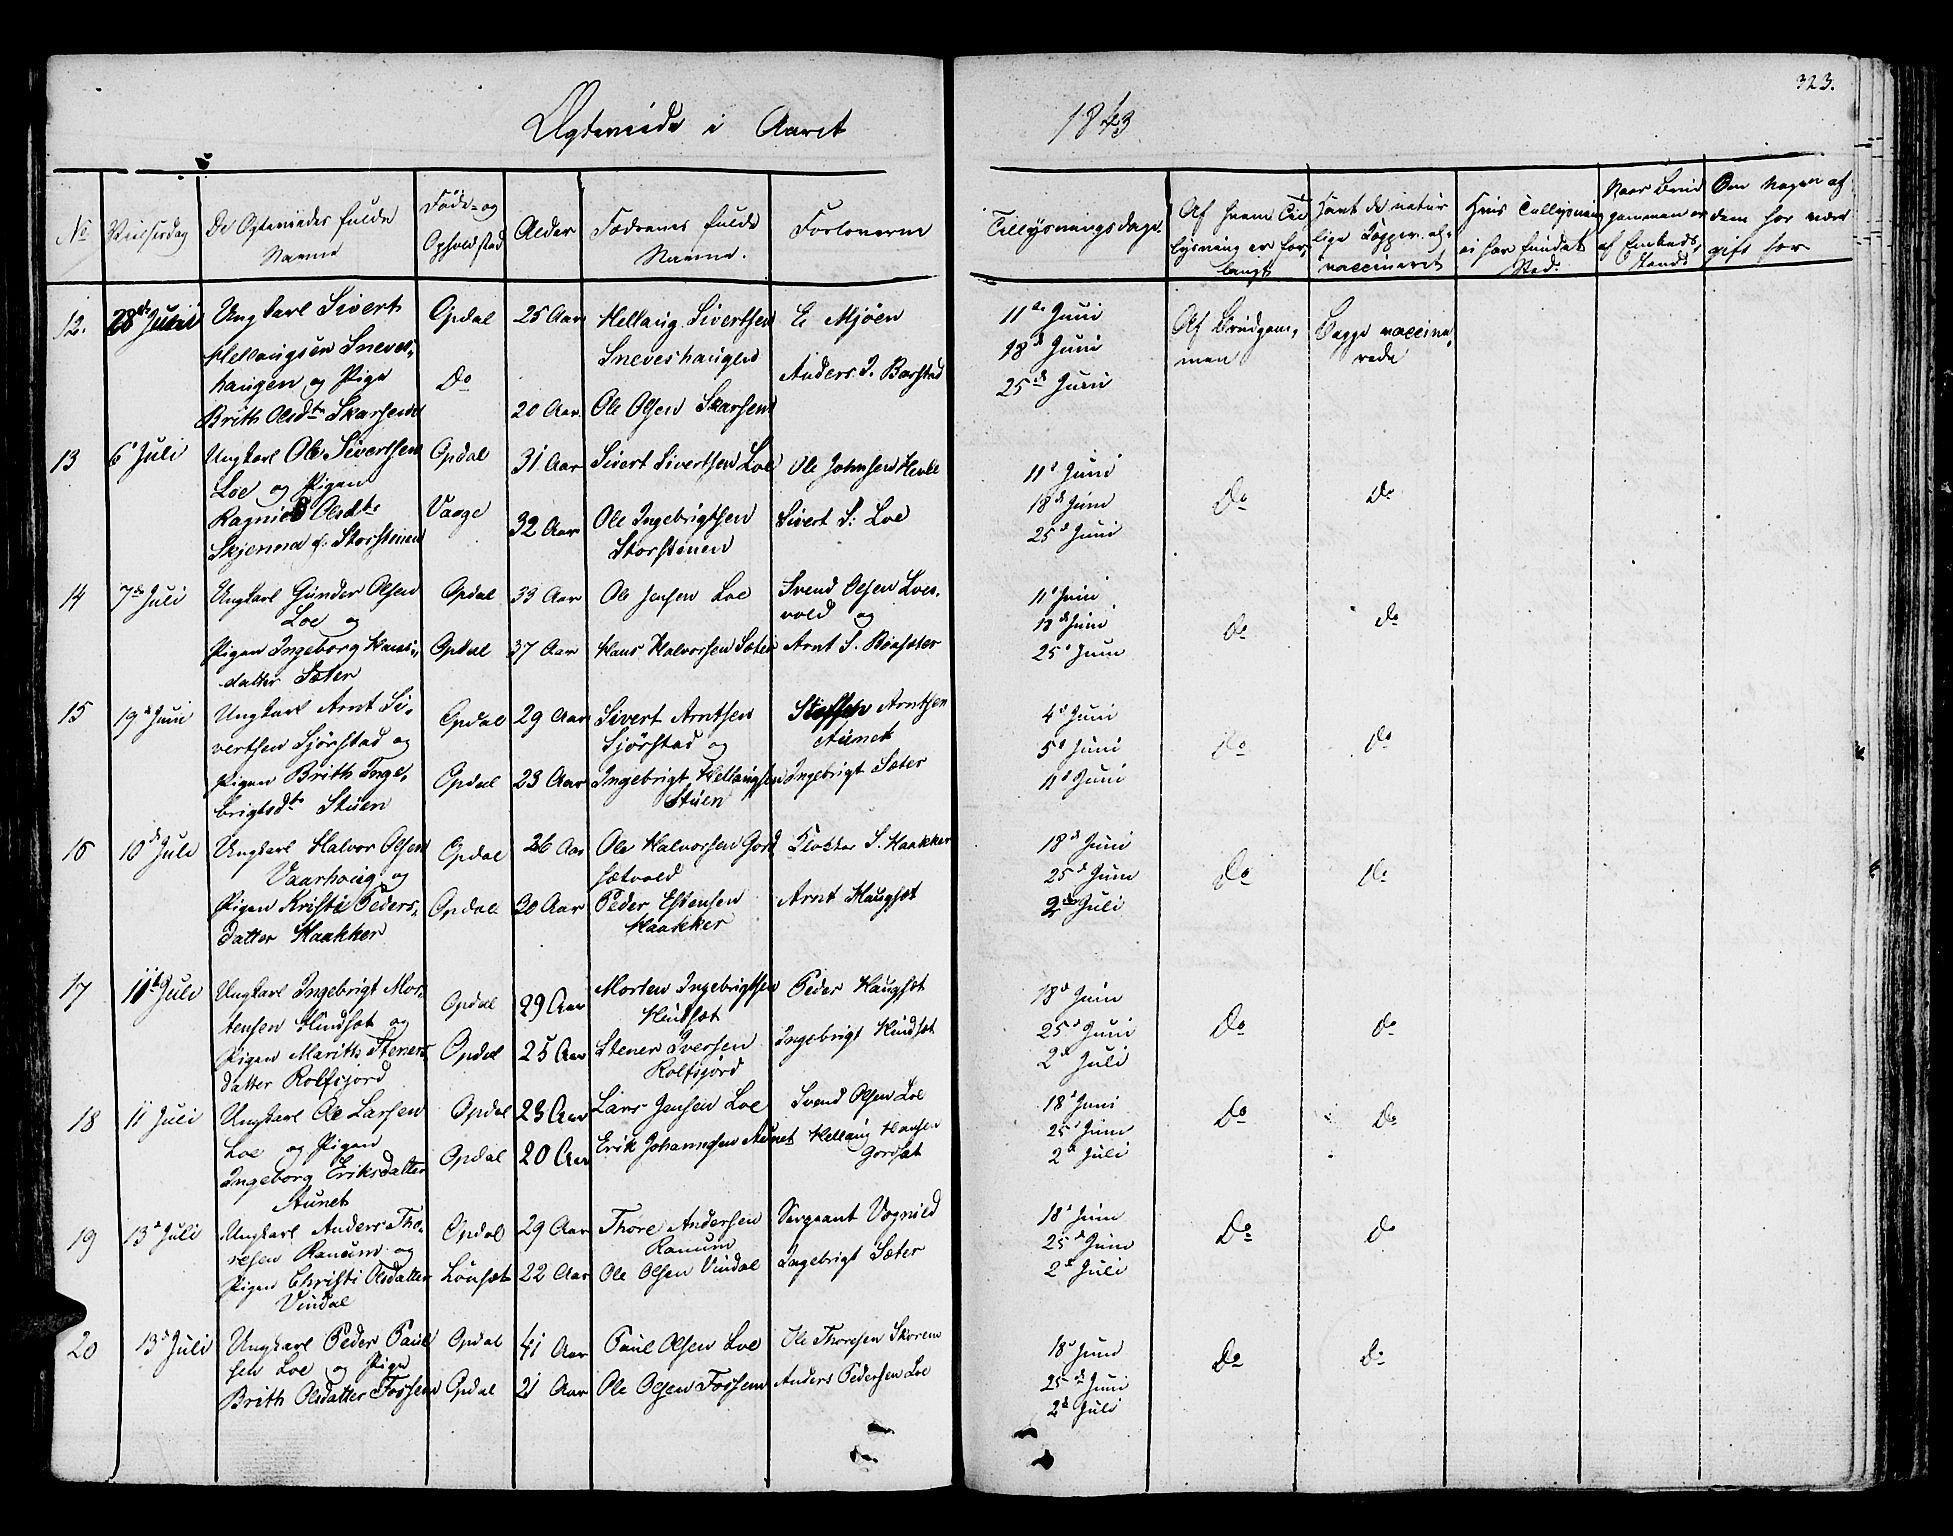 323.
Ægteviede i Aaret 1843
No
Vielsesdag
De Ægteviedes fulde Navne
Føde- og Opholdsted
Alder
Fædrenes fulde Navne.
Forloverne
Tillysningsdage.
Af hvem Tillysning er forlangt
Havt de naturlige Kopper el. vaccineret
Hvis Tillysning ei har fundet Sted.
Naar Brudgommen er af Embeds, Stands
Om nogen af dem har været gift før
12. 28de Juni Ungkarl Sivert Opdal 25 Aar Hellaug Sivertsen E Mjøen 11te Juni Af Brudgom- Begge vaccine-
Hellaugsen Sneves- Sneveshaugen 18de Juni men rede
haugen og Pige Do Anders J. Barstad 25de Juni
Brith Olsdtr Skarsem 20 Aar Ole Olsen Skarsem
13 6te Juli Ungkarl Ole Sivertsen Opdal 31 Aar Sivert Sivertsen Loe Ole Johnsen Hevle 11te Juni
Loe og Pigen 18de Juni Do Do
Ragnild Olsdtr Vaage 32 Aar Ole Ingebrigtsen Sivert S: Loe 25de Juni
Skjenna f. Storstenen Storstenen
14 7de Juli Ungkarl Gunder Olsen Opdal 33 Aar Ole Jensen Loe Svend Olsen Loes- 11te Juni
Loe og vold og 18de Juni Do Do
Pigen Ingeborg Hans- Opdal 37 Aar Hans Halvorsen Sæter Arnt S. Bøasæter 25de Juni
datter Sæter
15 19de Juni Ungkarl Arnt Si- Opdal 29 Aar Sivert Arntsen Steffen Arntsen 4de Juni
vertsen Sjørstad og Sjørstad og Aunet 5te Juni Do Do
Pigen Brith Inge- Opdal 23 Aar Ingebrigt Hellaugsen Ingebrigt Sæter 11te Juni
brigtsdtr Stuen Stuen
16 10de Juli Ungkarl Halvor Olsen Opdal 26 Aar Ole Halvorsen Gord S. Haakker 18de Juni
Vaarhoug og sætvold 25de Juni Do Do
Pigen Kristi Peders- Opdal 20 Aar Peder Estensen Arnt Haugsæt 2den Juli
datter Haakker Haakker
17 11te Juli Ungkarl Ingebrigt Mor- Opdal 29 Aar Morten Ingebrigtsen Peder Haugsæt 18de Juni
tensen Hindsæt og Hindsæt 25de Juni Do Do
Pigen Marith Steners- Opdal 25 Aar Stener Iversen Ingebrigt Hindsæt 2de Juli
datter Rolfsjord Rolfsjord
18 11 Juli Ungkarl Ole Larsen Opdal 23 Aar Lars Jensen Loe Svend Olsen Loe 18de Juni
Loe og Pigen 25de Juni Do Do
Ingeborg Eriksdatter Opdal 20 Aar Erik Johannesen Aunet Hellaug Hansen 2de Juli
Aunet Gorsæt
19 13de Juli Ungkarl Anders Tho- Opdal 29 Aar Thore Andersen Sergeant Vognild 18de Juni
resen Ranum og Ranum 25de Juni Do Do
Pigen Christi Olsdatter Lønsæt 22 Aar Ole Olsen Vindal Ingebrigt Sæter 2de Juli
Vindal
20 13de Juli Ungkarl Peder Paul Opdal 41 Aar Paul Olsen Loe Ole Thoresen Skorem 18de Juni
sen Loe og Pige 25de Juni Do Do
Brith Olsdatter Fossem Opdal 21 Aar Ole Olsen Fossem Anders Pedersen Loe 2de Juli